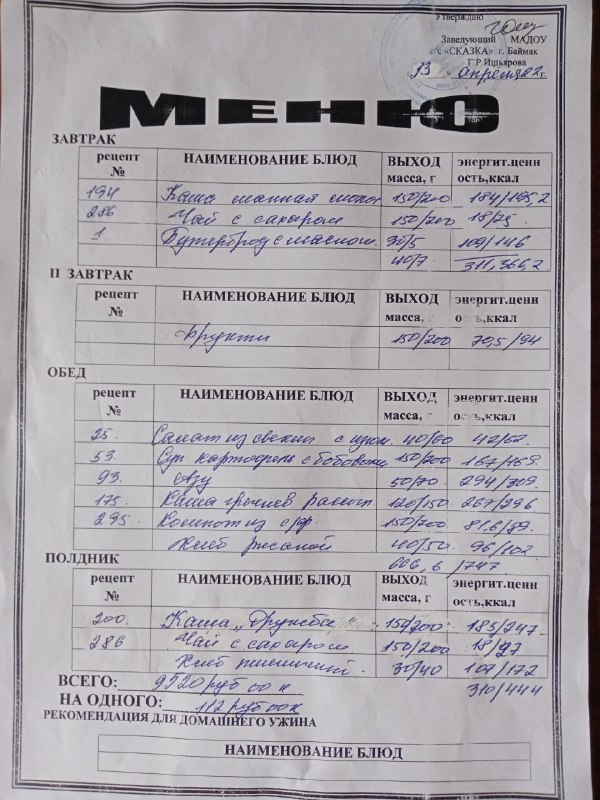 Утверждаю
Заведующий МАДОУ
д/с «СКАЗКА» г. Баймак
Г.Р.Ишъярова
апреля 22г.
МЕНЮ
ЗАВТРАК
рецепт № НАИМЕНОВАНИЕ БЛЮД ВЫХОД масса, г энергит.ценн ость,ккал
194 Каша манная молоч 150/200 184/195,2
286 Чай с сахаром 150/200 18/25
1 Бутерброд с маслом 30/5 109/146
40/7 311,366,2
II ЗАВТРАК
рецепт № НАИМЕНОВАНИЕ БЛЮД ВЫХОД масса, г энергит.ценн ость,ккал
Фрукты 150/200 70,5/94
ОБЕД
рецепт № НАИМЕНОВАНИЕ БЛЮД ВЫХОД масса, г энергит.ценн ость,ккал
25. Салат из свеклы с 40/60
53. Суп картофельн с бобовыми 150/200 167/169.
93. Азу 50/70 294/309
175. Каша гречнев рассып 120/150 267/296
295. Компот из с/ф. 150/200 81,6/89.
Хлеб ржаной 40/50 96/102
666,6/747
ПОЛДНИК
рецепт № НАИМЕНОВАНИЕ БЛЮД ВЫХОД масса, г энергит.ценн ость,ккал
200. Каша „Дружба" 150/200 185/247
286 Чай с сахаром 150/200 18/97
Хлеб пшеничный. 30/40 107/172
310/444
ВСЕГО: 9520 руб 00 к
НА ОДНОГО: 112 руб 00к
РЕКОМЕНДАЦИЯ ДЛЯ ДОМАШНЕГО УЖИНА
НАИМЕНОВАНИЕ БЛЮД